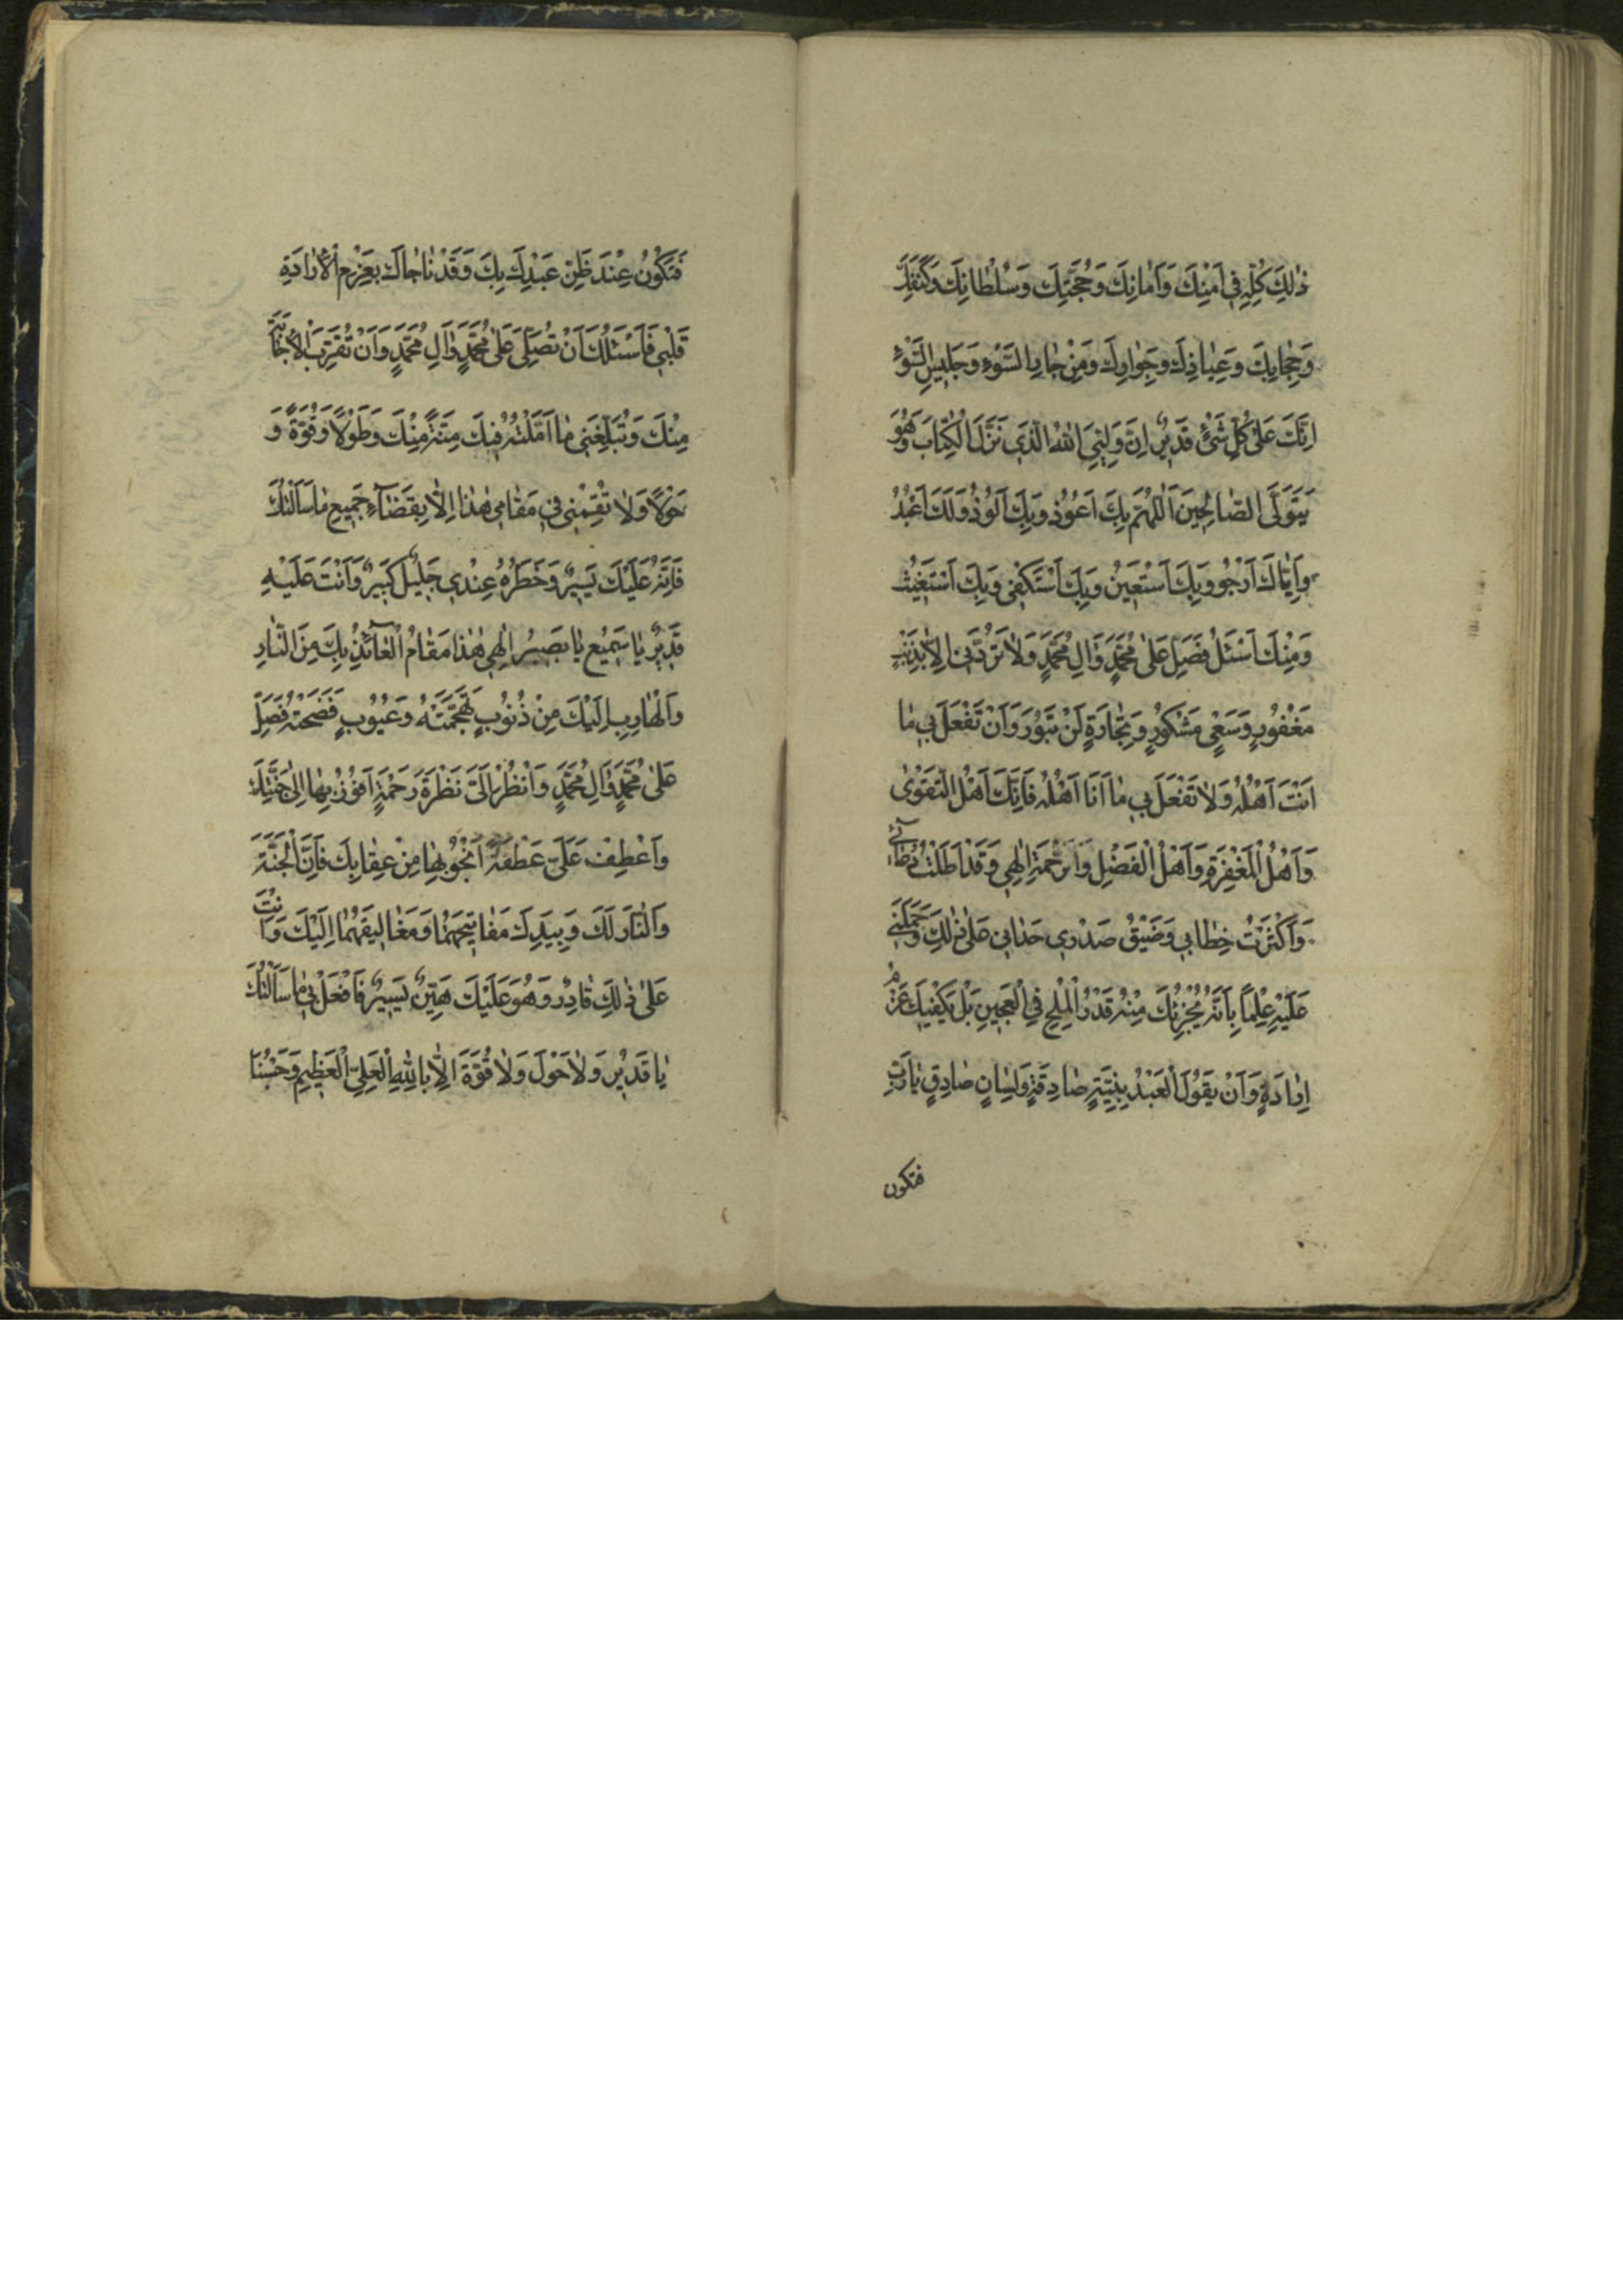 ذٰلِكَ كُلِّهِ فِي اَمْنِكَ وَاَمَانِكَ وَحُجَّتِكَ وَسُلْطَانِكَ وَكَنَفِكَ
وَحِجَابِكَ وَعِيَاذِكَ وَجِوَارِكَ وَمِنْ جَارِ السَّوْءِ وَجَلِيسِ السَّوْءِ
اِنَّكَ عَلٰى كُلِّ شَيْءٍ قَدِيرٌ اِنَّ وَلِيِّيَ اللّٰهُ الَّذِي نَزَّلَ الْكِتَابَ وَهُوَ
يَتَوَلَّى الصَّالِحِينَ اَللّٰهُمَّ بِكَ اَعُوذُ وَبِكَ اَلُوذُ وَلَكَ اَعْبُدُ
وَاِيَّاكَ اَرْجُو وَبِكَ اَسْتَعِينُ وَبِكَ اَسْتَكْفِي وَبِكَ اَسْتَغِيثُ
وَمِنْكَ اَسْئَلُ فَصَلِّ عَلٰى مُحَمَّدٍ وَاٰلِ مُحَمَّدٍ وَلَا تَرُدَّنِي اِلَّا بِذَنْبٍ
مَغْفُورٍ وَسَعْيٍ مَشْكُورٍ وَتِجَارَةٍ لَنْ تَبُورَ وَاَنْ تَفْعَلَ بِي مَا
اَنْتَ اَهْلُهُ وَلَا تَفْعَلَ بِي مَا اَنَا اَهْلُهُ فَاِنَّكَ اَهْلُ التَّقْوٰى
وَاَهْلُ الْمَغْفِرَةِ وَاَهْلُ الْفَضْلِ وَالرَّحْمَةِ اِلٰهِي وَقَدْ اَطَلْتُ دُعَائِي
وَاَكْثَرْتُ خِطَابِي وَضِيقُ صَدْرِي حَدَانِي عَلٰى ذٰلِكَ وَحَمَلَنِي
عَلَيْهِ عِلْمًا بِاَنَّهُ يُجْزِئُكَ مِنْهُ قَدْرُ الْمِلْحِ فِي الْعَجِينِ بَلْ يَكْفِيكَ عَزْمُ
اِرَادَةٍ وَاَنْ يَقُولَ الْعَبْدُ بِنِيَّةٍ صَادِقَةٍ وَلِسَانٍ صَادِقٍ يَا رَبِّ
فتكون
فَتَكُونُ عِنْدَ ظَنِّ عَبْدِكَ بِكَ وَقَدْ نَاجَاكَ بِعَزْمِ الْاِرَادَةِ
قَلْبِي فَاَسْئَلُكَ اَنْ تُصَلِّيَ عَلٰى مُحَمَّدٍ وَاٰلِ مُحَمَّدٍ وَاَنْ تُقَرِّبَ الْاِجَابَةَ
مِنْكَ وَتُبَلِّغَنِي مَا اَمَّلْتُهُ فِيكَ مِنَّةً مِنْكَ وَطَوْلًا وَقُوَّةً وَ
حَوْلًا وَلَا تُقِمْنِي فِي مَقَامِي هٰذَا اِلَّا بِقَضَاءِ جَمِيعِ مَا سَاَلْتُكَ
فَاِنَّهُ عَلَيْكَ يَسِيرٌ وَخَطَرُهُ عِنْدِي جَلِيلٌ كَبِيرٌ وَاَنْتَ عَلَيْهِ
قَدِيرٌ يَا سَمِيعُ يَا بَصِيرُ اِلٰهِي هٰذَا مَقَامُ الْعَائِذِ بِكَ مِنَ النَّارِ
وَالْهَارِبِ اِلَيْكَ مِنْ ذُنُوبٍ تَهَجَّمَتْهُ وَعُيُوبٍ فَضَحَتْهُ فَصَلِّ
عَلٰى مُحَمَّدٍ وَاٰلِ مُحَمَّدٍ وَانْظُرْ اِلَيَّ نَظْرَةَ رَحْمَةٍ اَفُوزُ بِهَا اِلٰى جَنَّتِكَ
وَاعْطِفْ عَلَيَّ عَطْفَةً اَنْجُو بِهَا مِنْ عِقَابِكَ فَاِنَّ الْجَنَّةَ
وَالنَّارَ لَكَ وَبِيَدِكَ مَفَاتِيحَهُمَا وَمَغَالِيقَهُمَا اِلَيْكَ وَاَنْتَ
عَلٰى ذٰلِكَ قَادِرٌ وَهُوَ عَلَيْكَ هَيِّنٌ يَسِيرٌ فَافْعَلْ بِي مَا سَاَلْتُكَ
يَا قَدِيرُ وَلَا حَوْلَ وَلَا قُوَّةَ اِلَّا بِاللّٰهِ الْعَلِيِّ الْعَظِيمِ وَحَسْبُنَا